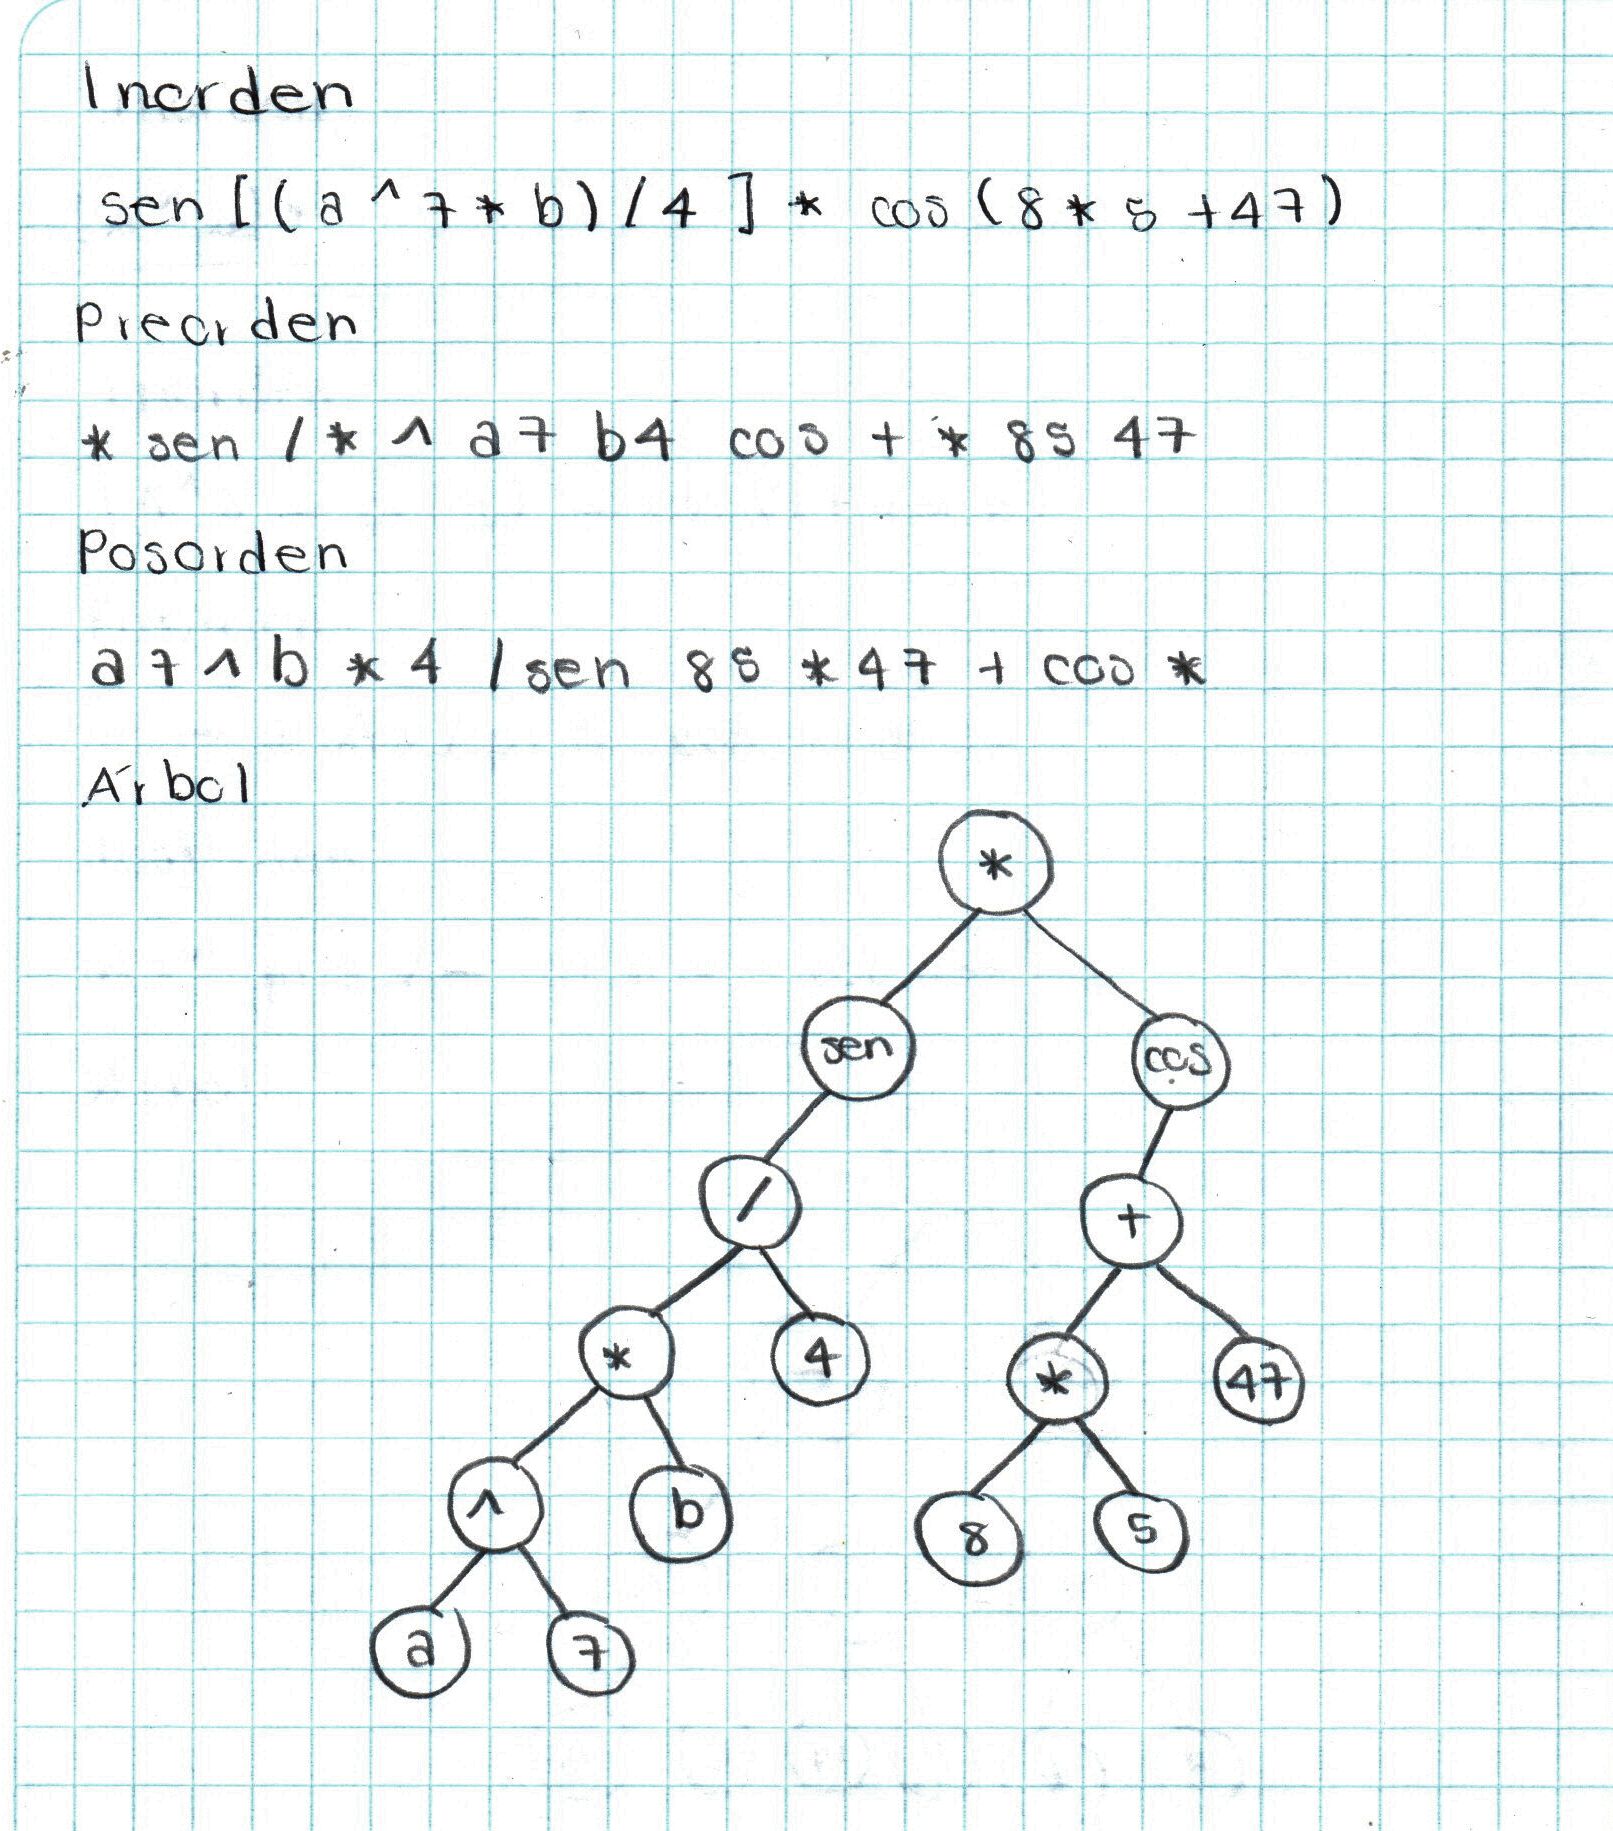 Inorden
sen [(a ^ 7 * b) / 4 ] * cos (8 * 5 +47)
Preorden
* sen / * ^ a 7 b4 cos + * 85 47
Posorden
a 7 ^ b * 4 / sen 85 * 47 + cos *
Árbol
*
sen cos
/ +
* 4 * 47
^ b 8 5
a 7